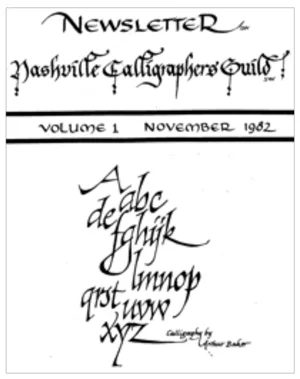 NEWSLETTER
Nashville Calligraphers' Guild!
VOLUME 1 NOVEMBER 1982
A abc
de fghijk
lmnop
qrst uvw
xyz
Calligraphy by
Arthur Baker